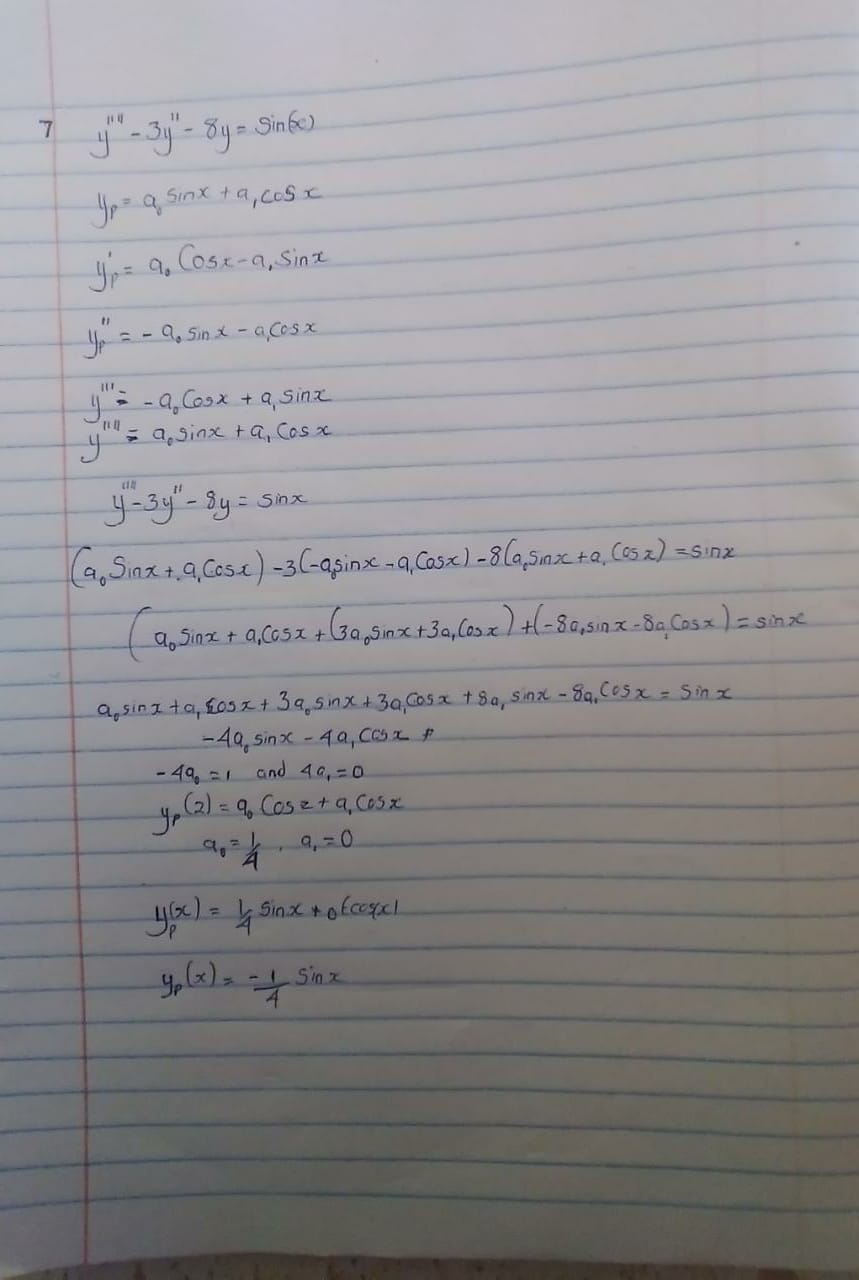 7 y'''' - 3y'' - 8y = Sin(x)
yₚ = a₀ sinx + a₁ cos x
y'ₚ = a₀ Cosx - a₁ Sinx
yₚ'' = - a₀ sin x - a₁cosx
y''' = - a₀ Cosx + a₁ Sinx
y'''' = a₀ sinx + a₁ Cos x
y'''' - 3y'' - 8y = sinx
(a₀ Sinx + a₁ Cosx) - 3(-a₀sinx - a₁ Cosx) - 8(a₀sinx + a₁ Cosx) = sinx
(a₀ sinx + a₁cosx + (3a₀sinx + 3a₁ Cosx) + (-8a₁sinx - 8a₁ Cosx) = sinx
a₀sinx + a₁ Cosx + 3a₀ sinx + 3a₁Cosx + 8a₁ sinx - 8a₁ Cosx = Sinx
-4a₀ sinx - 4a₁ Cosx
-4a₀ = 1 and 4a₁ = 0
yₚ(2) = a₀ Cos2 + a₁ Cosx
a₀ = 1/4 . a₁ = 0
yₚ(x) = 1/4 Sinx + 0(cosx)
yₚ(x) = - 1/4 Sinx